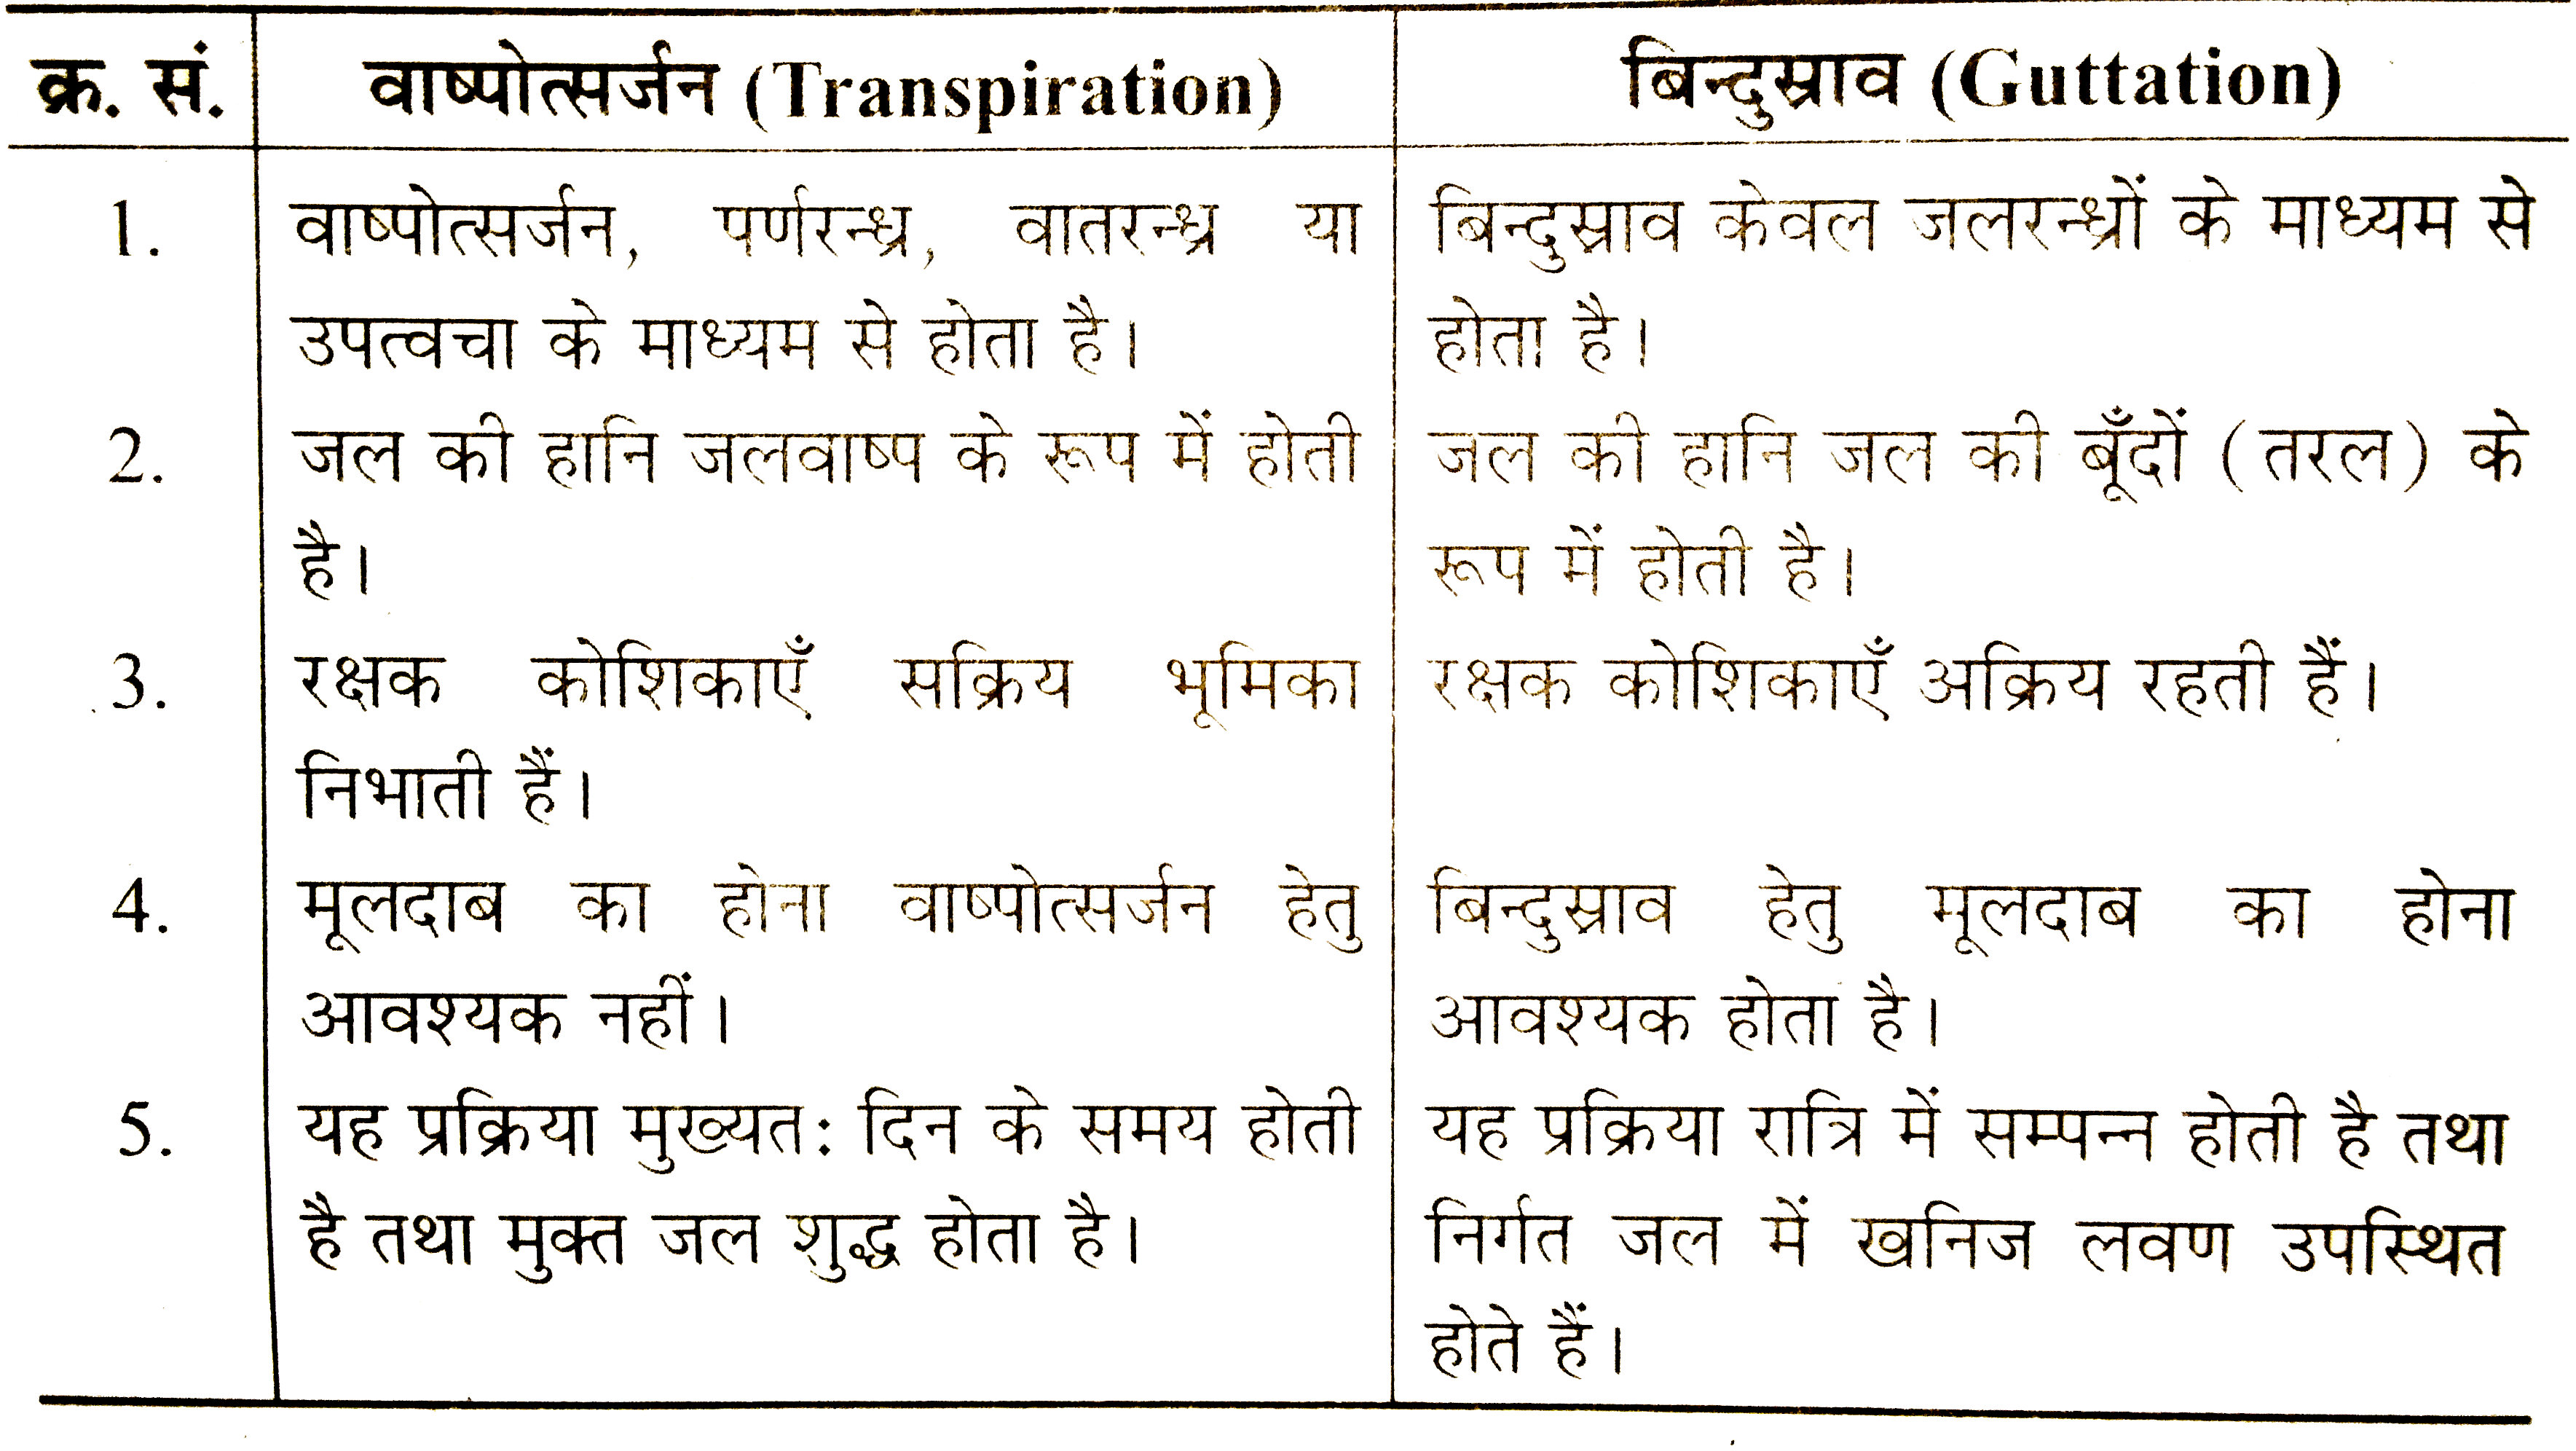 क्र. सं. वाष्पोत्सर्जन (Transpiration) बिन्दुस्राव (Guttation)
1. वाष्पोत्सर्जन, पर्णरन्ध्र, वातरन्ध्र या बिन्दुस्राव केवल जलरन्ध्रों के माध्यम से
उपत्वचा के माध्यम से होता है। होता है।
2. जल की हानि जलवाष्प के रूप में होती जल की हानि जल की बूँदों (तरल) के
है। रूप में होती है।
3. रक्षक कोशिकाएँ सक्रिय भूमिका रक्षक कोशिकाएँ अक्रिय रहती हैं।
निभाती हैं।
4. मूलदाब का होना वाष्पोत्सर्जन हेतु बिन्दुस्राव हेतु मूलदाब का होना
आवश्यक नहीं। आवश्यक होता है।
5. यह प्रक्रिया मुख्यत: दिन के समय होती यह प्रक्रिया रात्रि में सम्पन्न होती है तथा
है तथा मुक्त जल शुद्ध होता है। निर्गत जल में खनिज लवण उपस्थित
होते हैं।